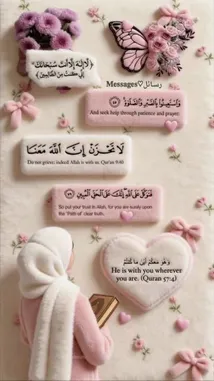 ﴿لَّا إِلَٰهَ إِلَّا أَنتَ سُبْحَانَكَ
إِنِّي كُنتُ مِنَ الظَّالِمِينَ﴾
Messages♡رسائل
وَاسْتَعِينُوا بِالصَّبْرِ وَالصَّلَاةِ
And seek help through patience and prayer.
لَا تَحْزَنْ إِنَّ اللَّهَ مَعَنَا
Do not grieve; indeed Allah is with us. Quran 9:40
فَتَوَكَّلْ عَلَى اللَّهِ إِنَّكَ عَلَى الْحَقِّ الْمُبِينِ
So put your trust in Allah, for you are surely upon
the 'Path of' clear truth.
وَهُوَ مَعَكُمْ أَيْنَ مَا كُنتُمْ
He is with you wherever
you are. (Quran 57:4)